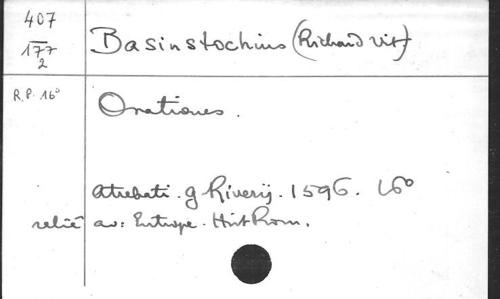 407
177
2
Basinstochius (Richard Vit.)
R.P. 16°
Orationes.
Atrebati. g Riverij. 1596. 16°
relié av: Eutrope. Hist Rom.